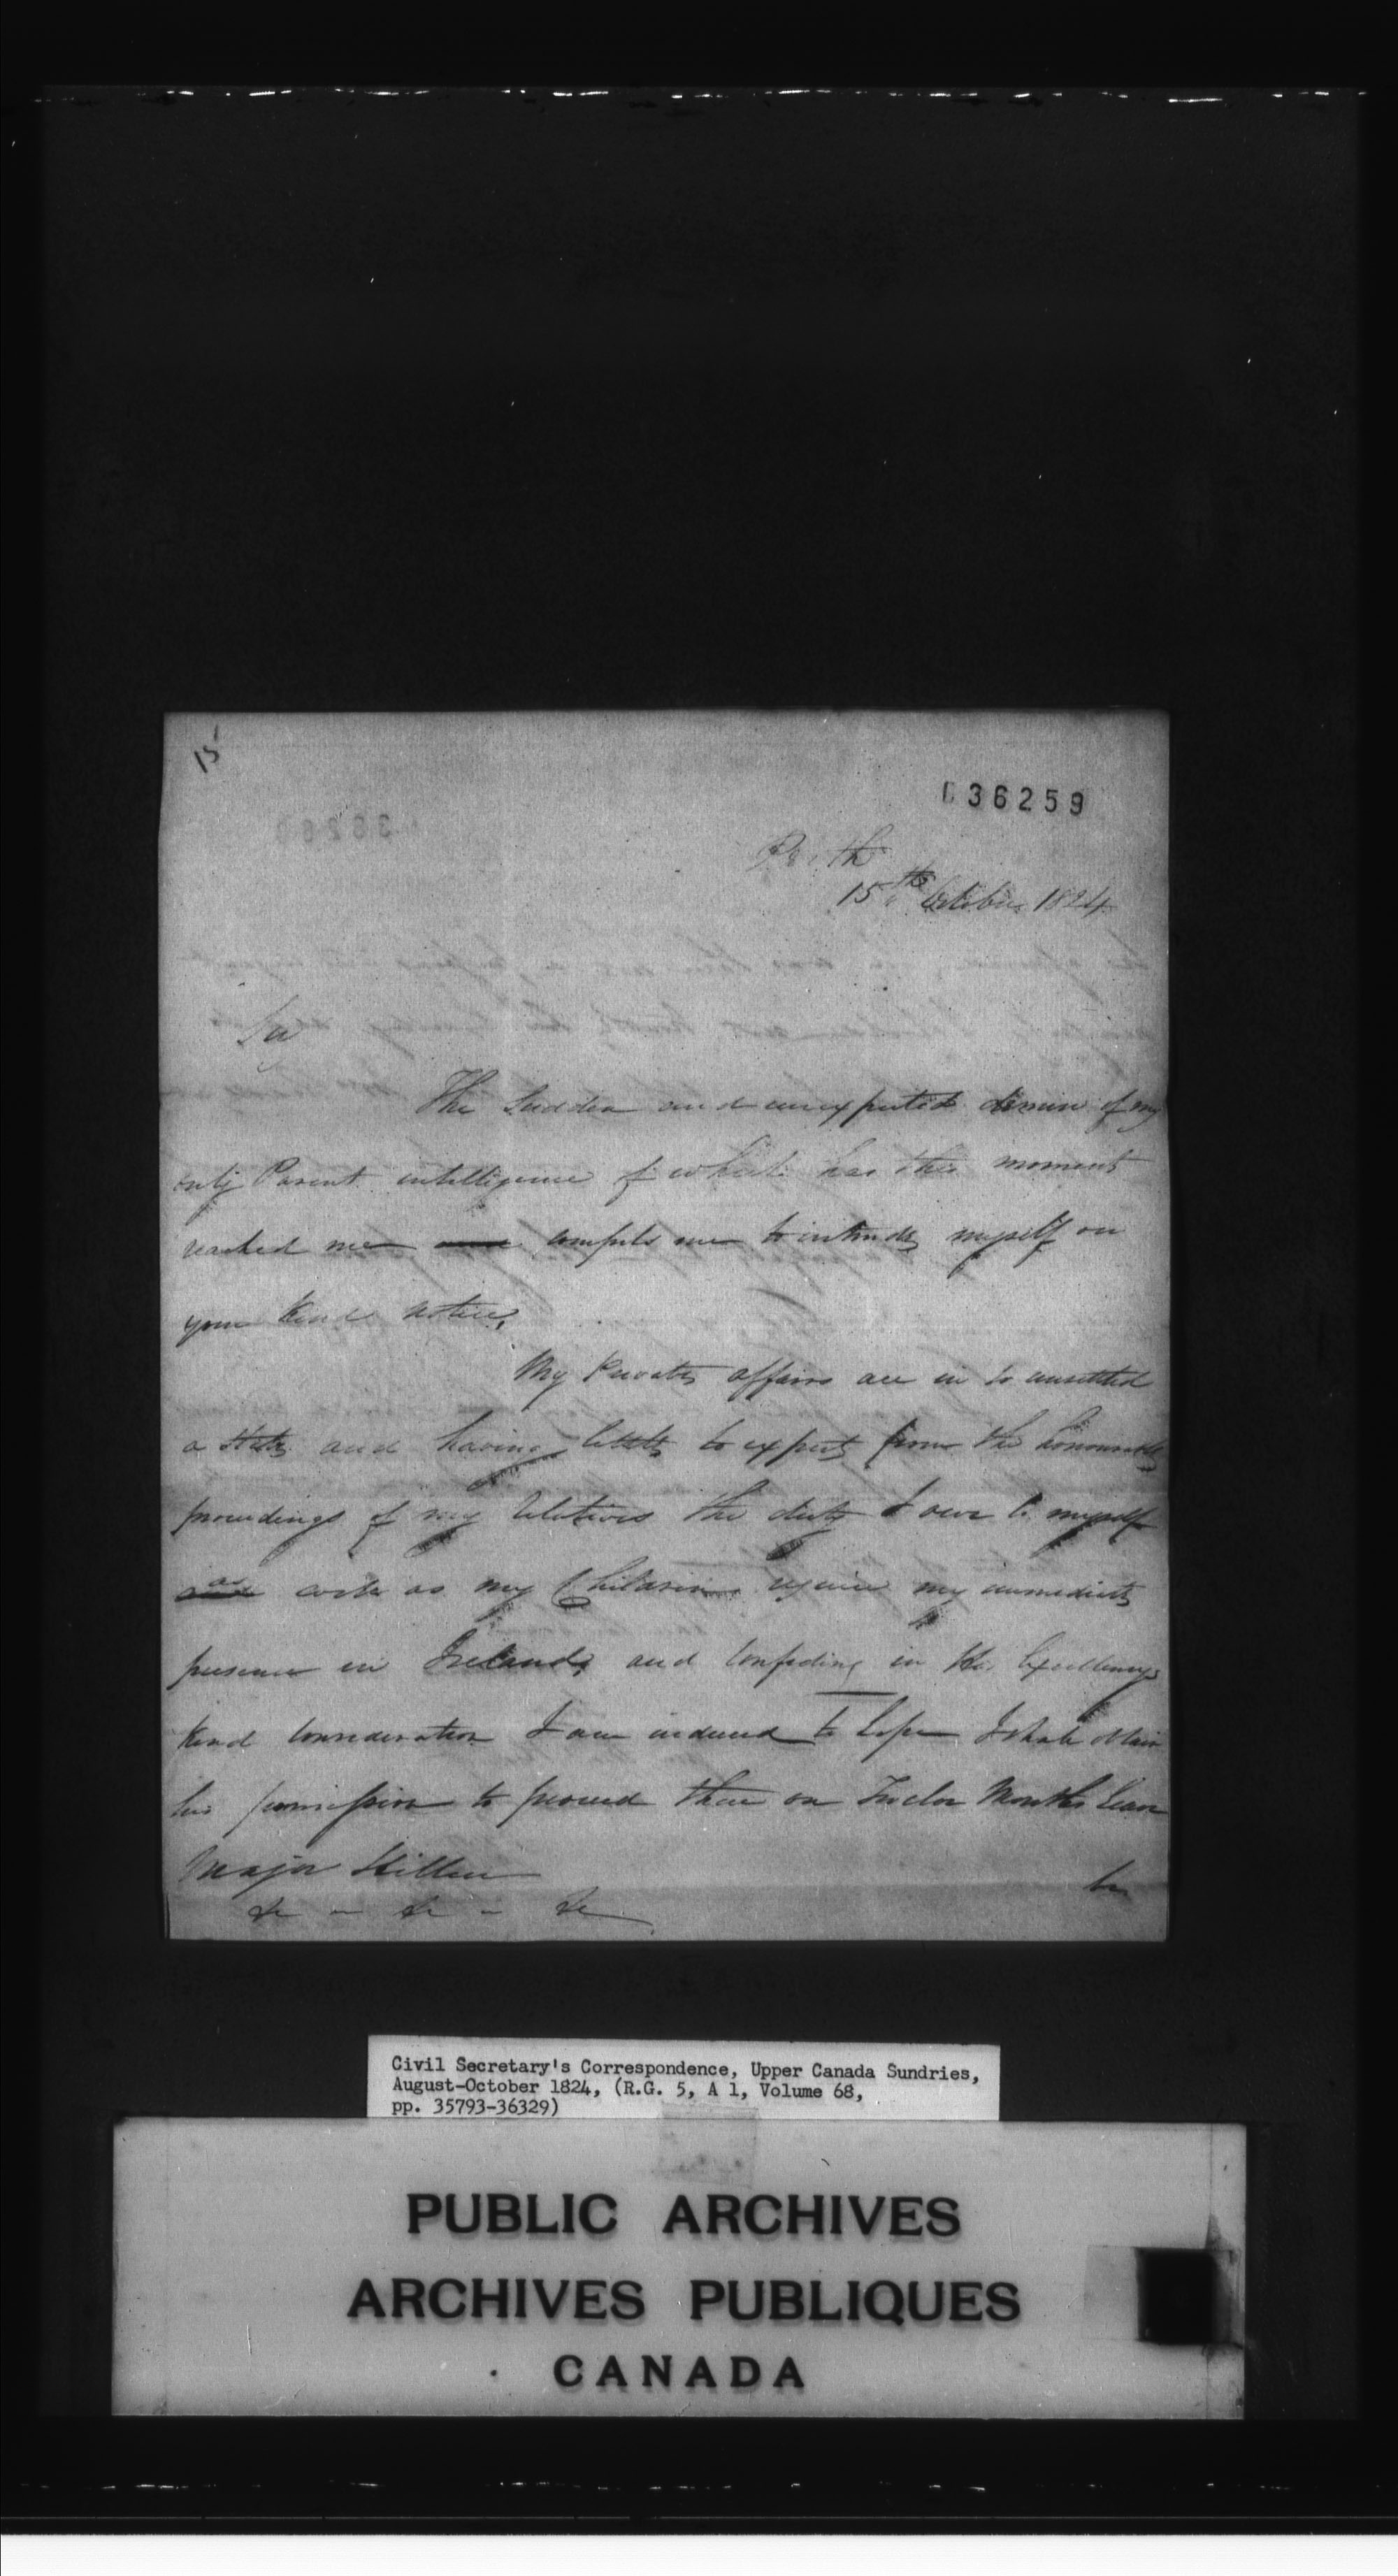 15
036259
Perth
15th October 1824
Sir
The Sudden and unexpected demise of my
only Parent intelligence of which has this moment
reached me compels me to intrude myself on
your kind notice,
My Private affairs are in so unsettled
a State and having little to expect from the honourable
proceedings of my Relatives the duty I owe to myself
as well as my Children require my immediate
presence in Ireland, and confiding in His Excellency's
kind consideration I am induced to hope I shall obtain
his permission to proceed there on Twelve Months leave
Major Hillier
&c - &c - &c
Civil Secretary's Correspondence, Upper Canada Sundries,
August-October 1824, (R.G. 5, A 1, Volume 68,
pp. 35793-36329)
PUBLIC ARCHIVES
ARCHIVES PUBLIQUES
CANADA